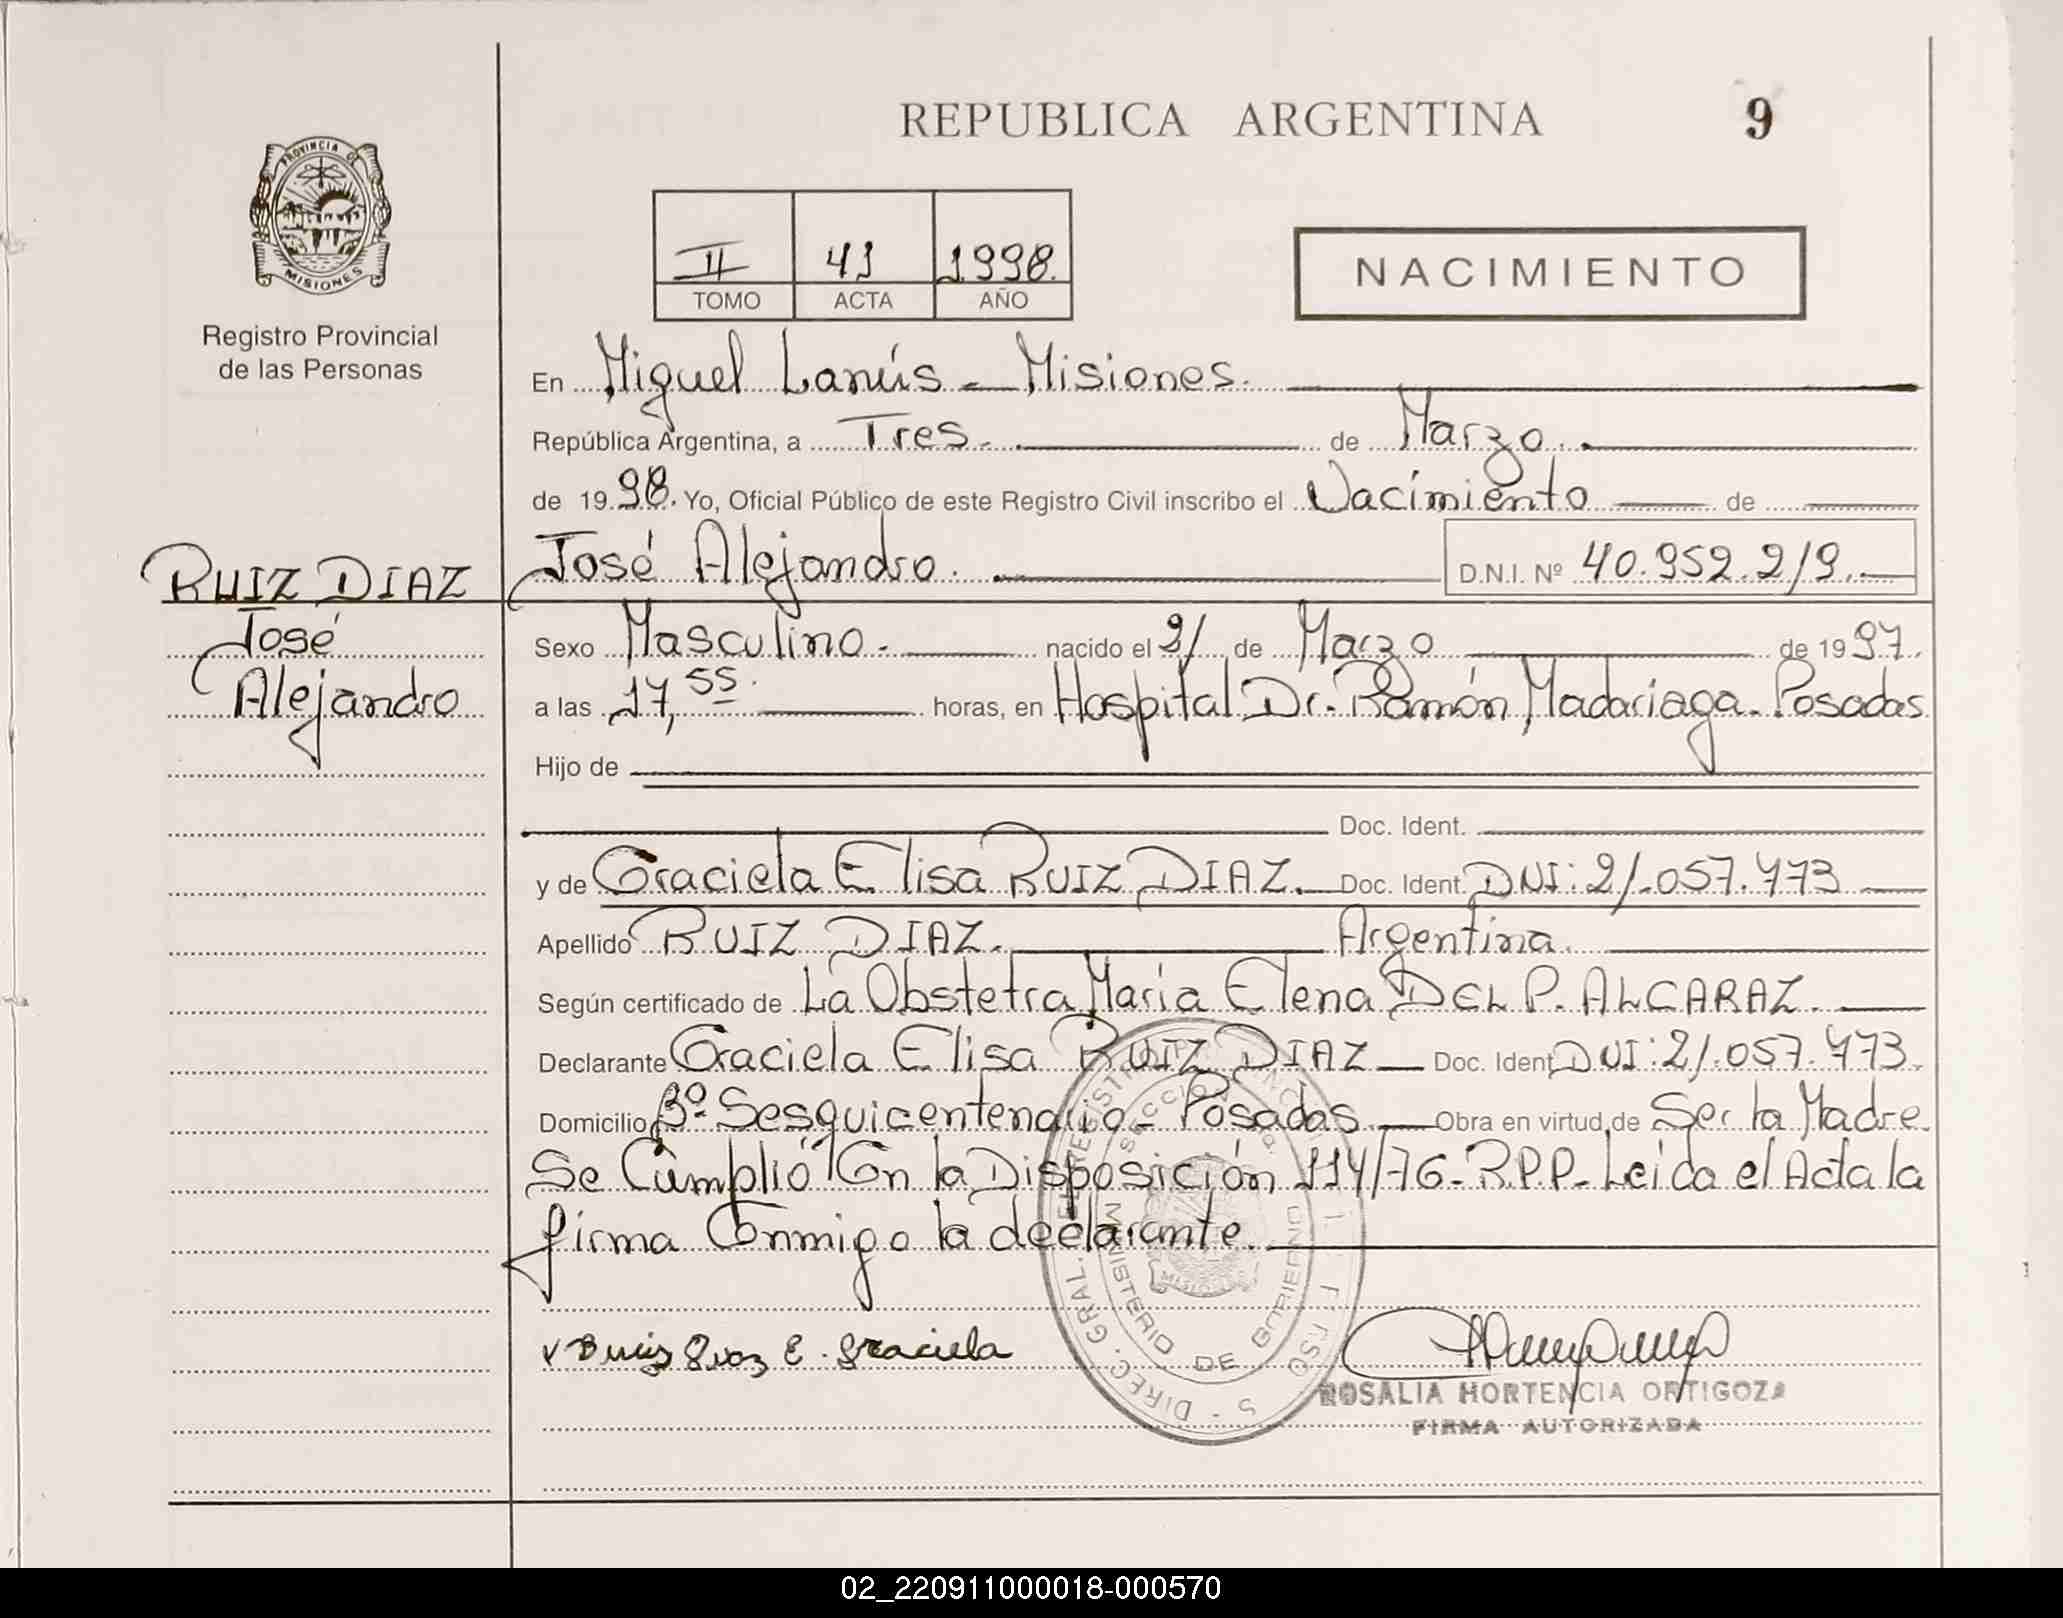 REPUBLICA ARGENTINA
9
PROVINCIA DE
MISIONES
Registro Provincial
de las Personas
II 41 1998.
TOMO ACTA AÑO
NACIMIENTO
En Miguel Lanús - Misiones.
República Argentina, a Tres. de Marzo.
de 1998. Yo, Oficial Público de este Registro Civil inscribo el Nacimiento de
RUIZ DIAZ
José
Alejandro
José Alejandro. D.N.I. Nº 40.952.219.
Sexo Masculino. nacido el 21 de Marzo de 1997.
a las 17,55. horas, en Hospital Dr. Ramón Madariaga. Posadas
Hijo de
Doc. Ident.
y de Graciela Elisa RUIZ DIAZ. Doc. Ident. DNI: 21.057.473
Apellido RUIZ DIAZ. Argentina.
Según certificado de La Obstetra María Elena DEL P. ALCARAZ.
Declarante Graciela Elisa RUIZ DIAZ Doc. Ident. DNI: 21.057.473.
Domicilio Bº Sesquicentenario - Posadas. Obra en virtud de Ser la Madre.
Se Cumplió Con la Disposición 114/76- R.P.P- Leída el Acta la
firma Conmigo la declarante.
MINISTERIO DE GOBIERNO
MISIONES
Ruiz Diaz E. Graciela
ROSALIA HORTENCIA ORTIGOZA
FIRMA AUTORIZADA
02_220911000018-000570